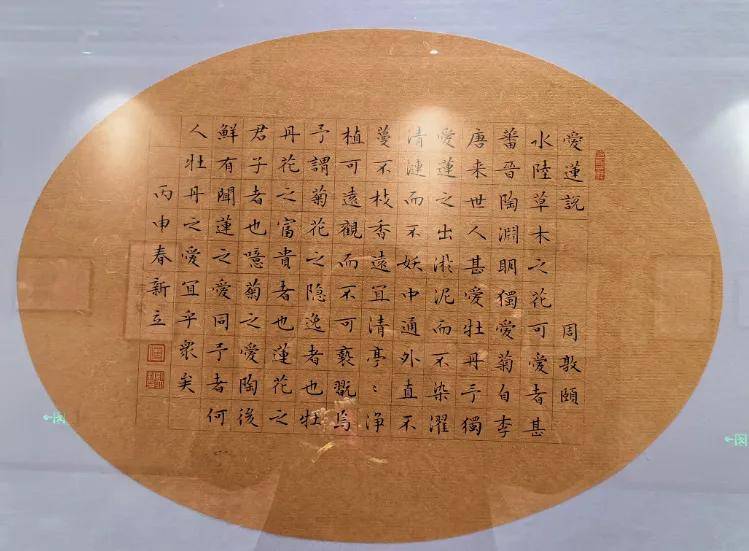 愛蓮説 周敦頤
水陸草木之花可愛者甚
蕃晉陶淵眀獨愛菊自李
唐来世人甚愛牡丹予獨
愛蓮之出淤泥而不染濯
清漣而不妖中通外直不
蔓不枝香遠冝清亭〻浄
植可遠觀而不可褻翫焉
予謂菊花之隐逸者也牡
丹花之富貴者也蓮花之
君子者也噫菊之愛陶後
鮮有聞蓮之愛同予者何
人牡丹之愛冝乎衆矣
丙申春新立